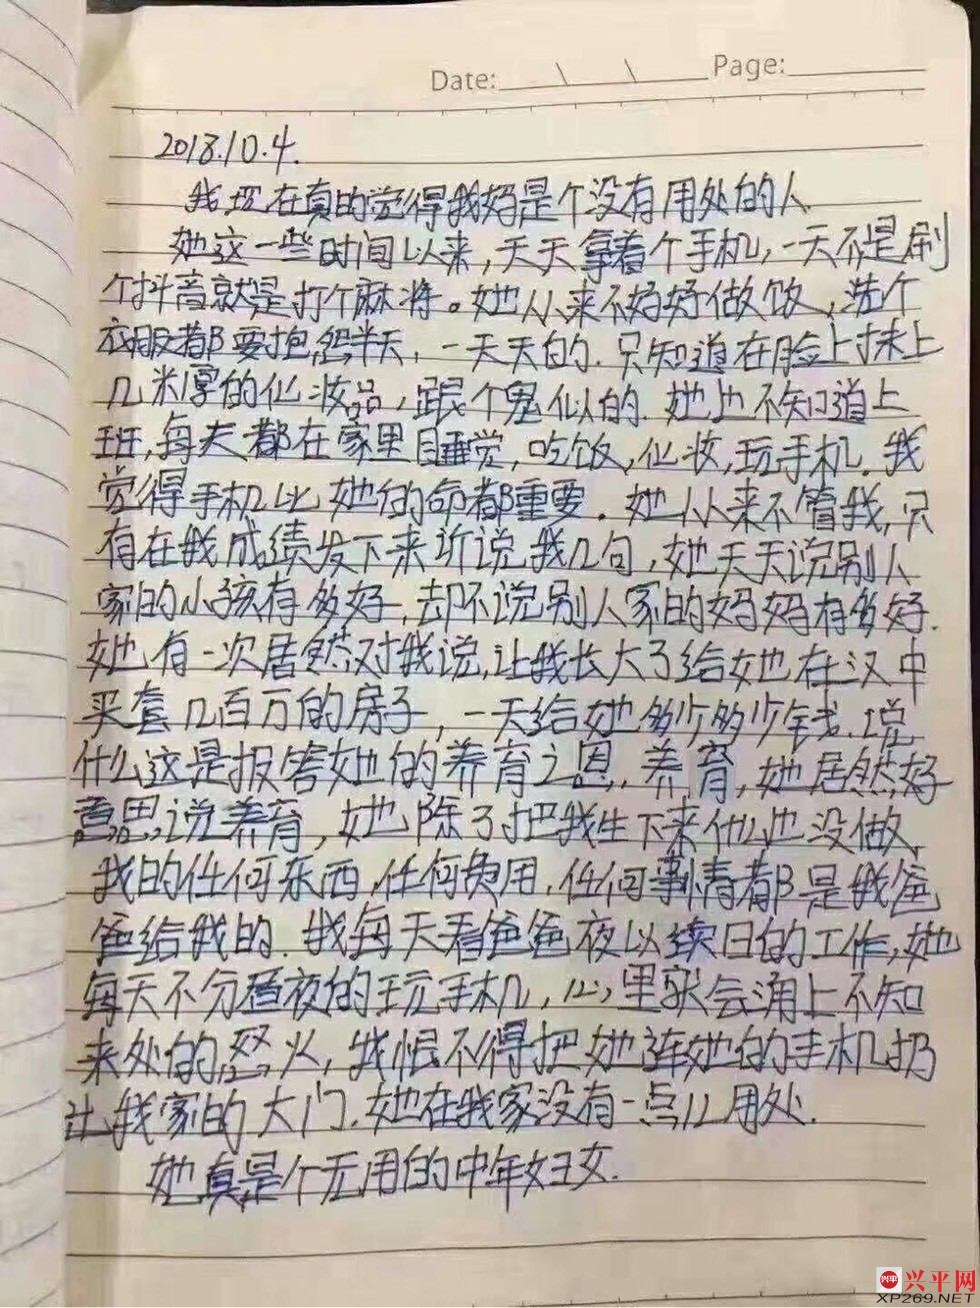 Date: \ \ Page:
2018.10.4.
我现在真的觉得我妈是个没有用处的人
她这一些时间以来，天天拿着个手机，一天不是刷
个抖音就是打个麻将。她从来不好好做饭，洗个
衣服都要抱怨半天，一天天的．只知道在脸上抹上
几米厚的化妆品，跟个鬼似的．她也不知道上
班，每天都在家里睡觉，吃饭，化妆，玩手机．我
觉得手机比她的命都重要．她从来不管我，只
有在我成绩发下来听说我几句，她天天说别人
家的小孩有多好，却不说别人家的妈妈有多好．
她有一次居然对我说，让我长大了给她在汉中
买套几百万的房子，一天给她多少多少钱．说
什么这是报答她的养育之恩，养育，她居然好
意思说养育，她除了把我生下来什么也没做，
我的任何东西，任何费用，任何事情都是我爸
爸给我的．我每天看爸爸夜以续日的工作，她
每天不分昼夜的玩手机，心里就会涌上不知
来处的怒火，我恨不得把她连她的手机扔
出我家的大门．她在我家没有一点儿用处．
她真是个无用的中年妇女．
兴平 兴平网
XP269.NET